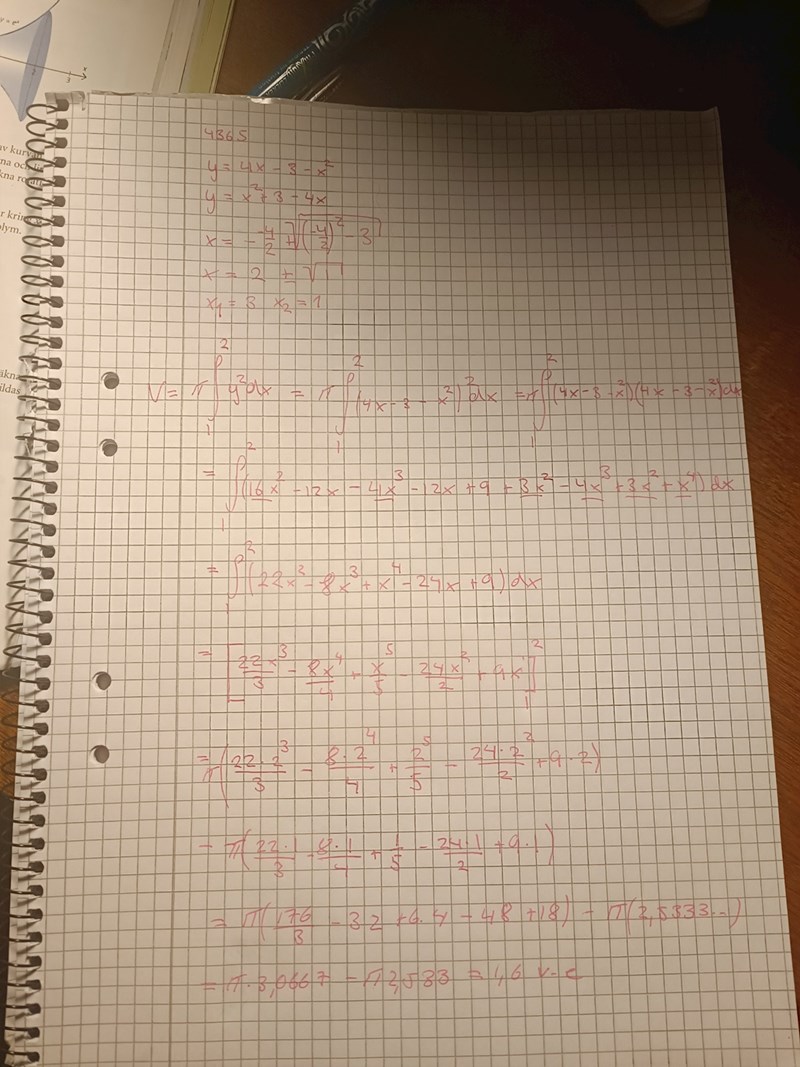 4365
y = 4x - 3 - x²
y = x² + 3 - 4x
x = - -4/2 ± √((-4/2)² - 3)
x = 2 ± √1
x₁ = 3 x₂ = 1
V = π ∫₁² y² dx = π ∫₁² (4x - 3 - x²)² dx = π ∫₁² (4x - 3 - x²)(4x - 3 - x²) dx
= ∫₁² (16x² - 12x - 4x³ - 12x + 9 + 3x² - 4x³ + 3x² + x⁴) dx
= ∫₁² (22x² - 8x³ + x⁴ - 24x + 9) dx
= [22x³/3 - 8x⁴/4 + x⁵/5 - 24x²/2 + 9x]₁²
= π(22·2³/3 - 8·2⁴/4 + 2⁵/5 - 24·2²/2 + 9·2)
- π(22·1/3 - 8·1/4 + 1/5 - 24·1/2 + 9·1)
= π(176/3 - 32 + 6.4 - 48 + 18) - π(2,5333...)
= π·3,0667 - π2,533 = 1,6 v.e
av kurvan
na och
kna
r kring
lym.
äkna
ildas